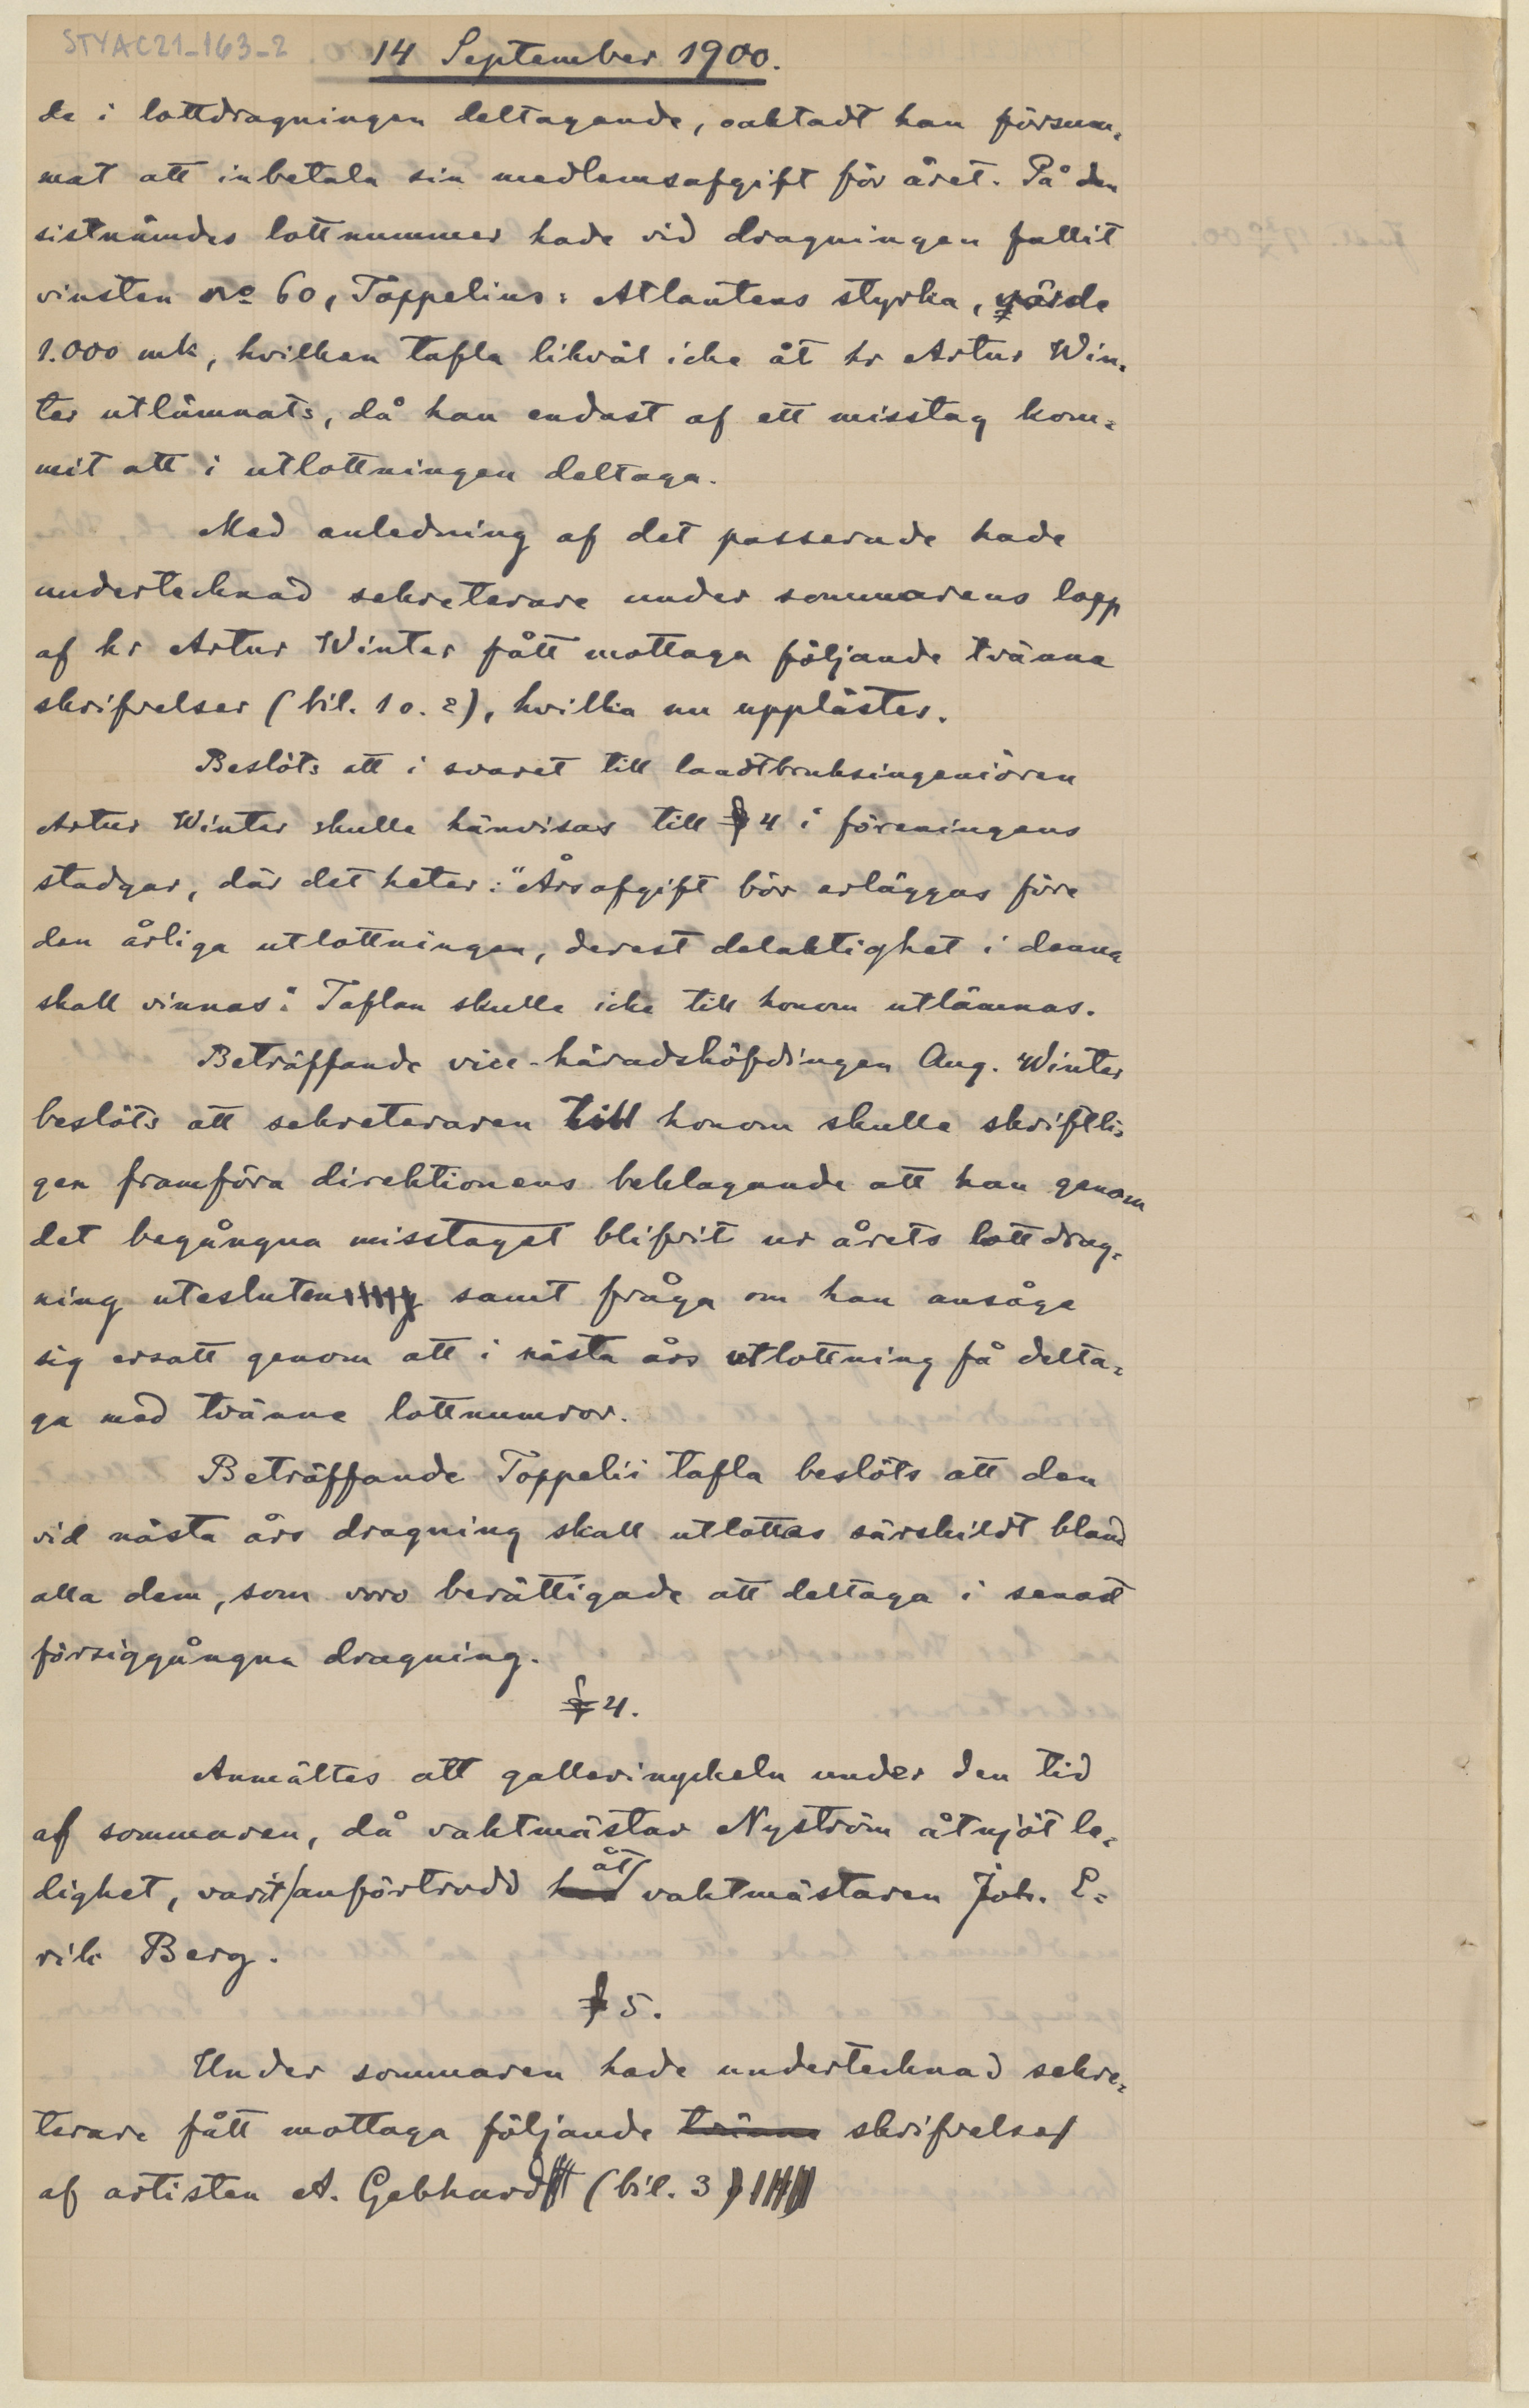 STYAC21_163_2
14 September 1900.
de i lottdragningen deltagande, oaktadt han försum=
mat att inbetala sin medlemsafgift för året. På den
sistnämdes lottnummer hade vid dragningen fallit
vinsten no 60, Toppelius: Atlantens styrka, värde
1.000 mk, hvilken tafla likväl icke åt hr Artur Win=
ter utlämnats, då han endast af ett misstag kom=
mit att i utlottningen deltaga.
Med anledning af det passerade hade
undertecknad sekreterare under sommarens lopp
af hr Artur Winter fått mottaga följande tvänne
skrifvelser (bil. 1 o. 2), hvilka nu upplästes.
Beslöts att i svaret till landtbruksingeniören
Artur Winter skulle hänvisas till § 4 i föreningens
stadgar, där det heter: "Årsafgift bör erläggas före
den årliga utlottningen, derest delaktighet i denna
skall vinnas". Taflan skulle icke till honom utlämnas.
Beträffande vice-häradshöfdingen Aug. Winter
beslöts att sekreteraren till honom skulle skriftli=
gen framföra direktionens beklagande att han genom
det begångna misstaget blifvit ur årets lottdrag=
ning utesluten samt fråga om han ansåge
sig ersatt genom att i nästa års utlottning få delta=
ga med tvänne lottnumror.
Beträffande Toppelii tafla beslöts att den
vid nästa års dragning skall utlottas särskildt bland
alla dem, som voro berättigade att deltaga i senast
försiggångna dragning.
§ 4.
Anmältes att gallerinyckeln under den tid
af sommaren, då vaktmästar Nyström åtnjöt le=
dighet, varit anförtrodd åt vaktmästaren Joh. E=
rik Berg.
§ 5.
Under sommaren hade undertecknad sekre=
terare fått mottaga följande tvänne skrifvelse
af artisten A. Gebhard (bil. 3)